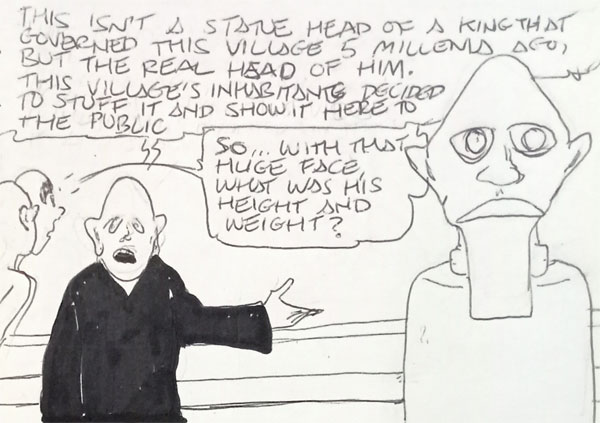 THIS ISN'T A STATUE HEAD OF A KING THAT
GOVERNED THIS VILLAGE 5 MILLENIA AGO,
BUT THE REAL HEAD OF HIM.
THIS VILLAGE'S INHABITANTS DECIDED
TO STUFF IT AND SHOW IT HERE TO
THE PUBLIC
SO... WITH THAT
HUGE FACE,
WHAT WAS HIS
HEIGHT AND
WEIGHT?